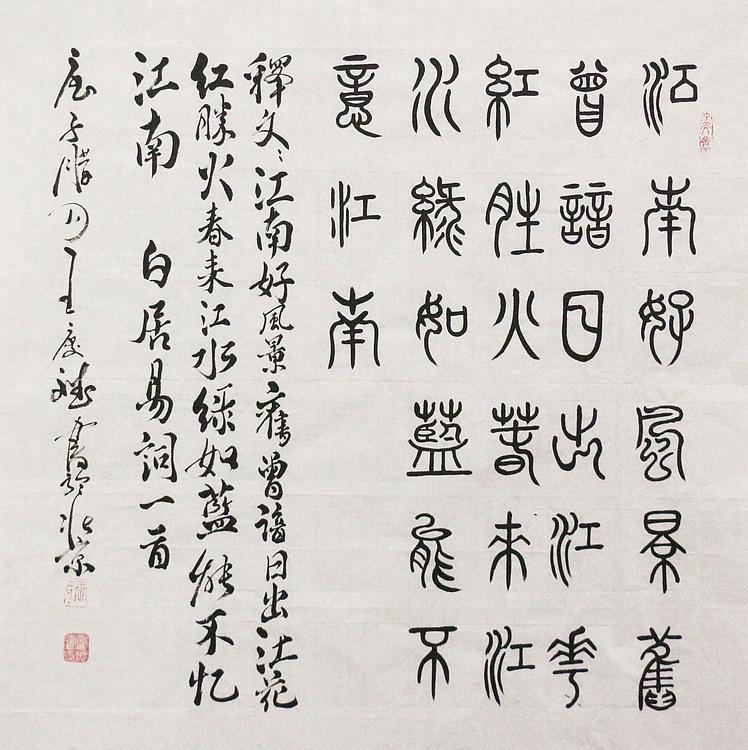 江南好風景舊
曾諳日出江花
紅胜火春來江
水綠如藍能不
意江南
釋文:江南好風景舊曾諳日出江花
红勝火春来江水綠如藍能不忆
江南 白居易詞一首
子臘月 北京